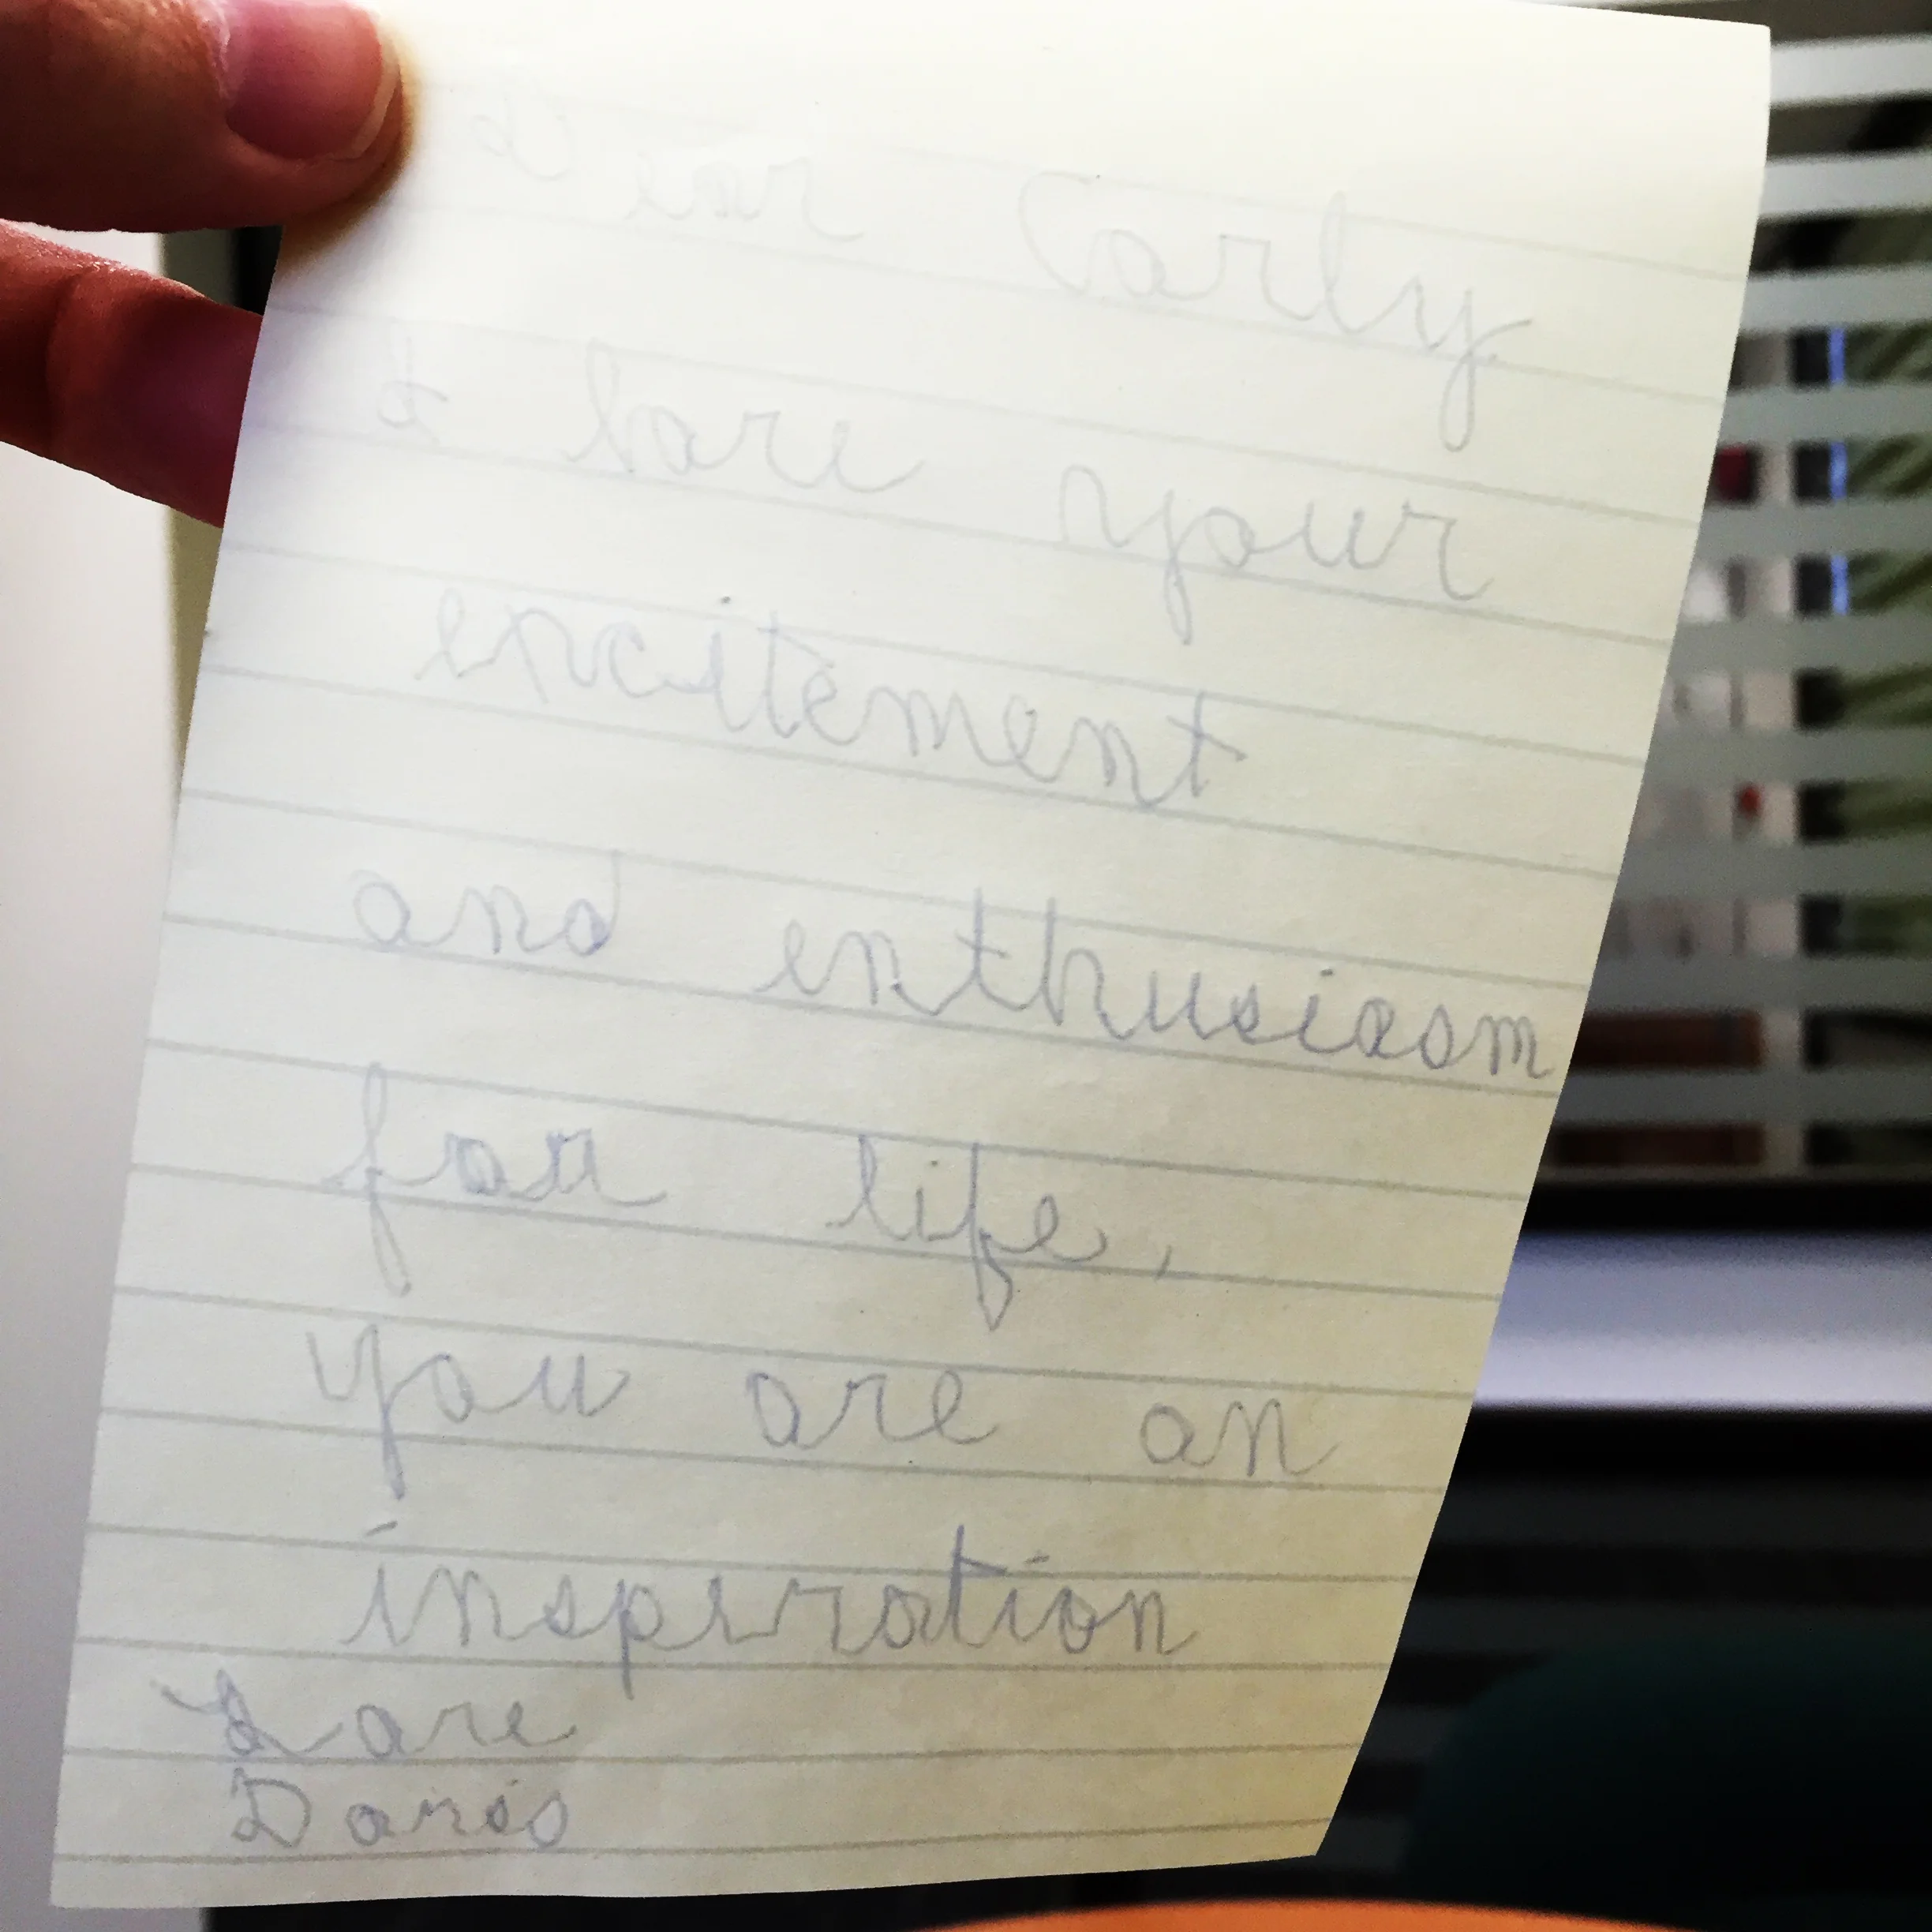 Dear Carly
I love your
excitement
and enthusiasm
for life,
you are an
inspiration
Love
Doris